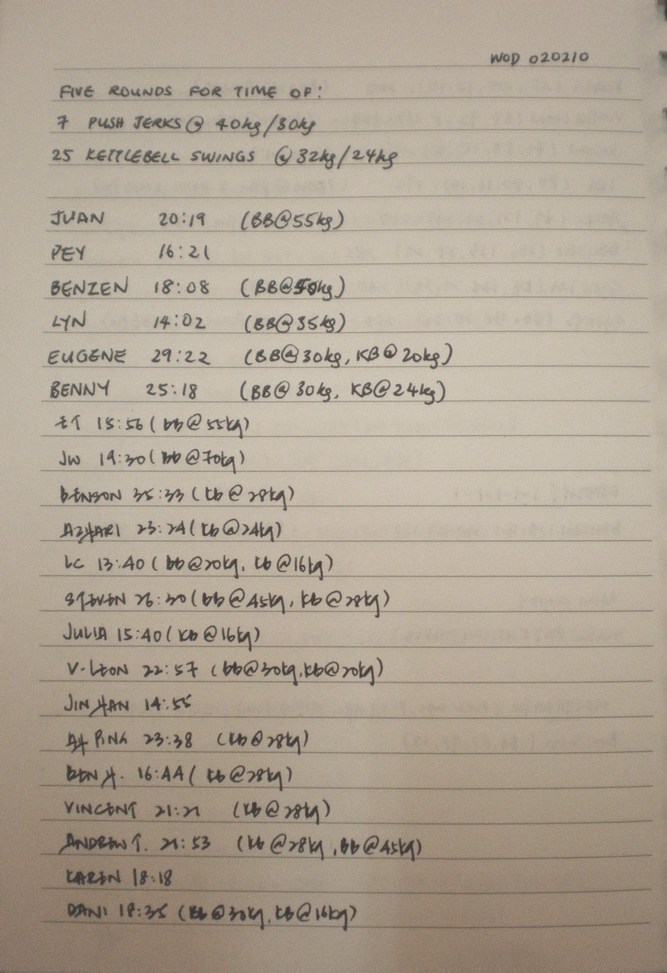 WOD 020210
FIVE ROUNDS FOR TIME OF:
7 PUSH JERKS @ 40kg/30kg
25 KETTLEBELL SWINGS @32kg/24kg
JUAN 20:19 (BB@55kg)
PEY 16:21
BENZEN 18:08 (BB@50kg)
LYN 14:02 (BB@35kg)
EUGENE 29:22 (BB@30kg, KB@20kg)
BENNY 25:18 (BB@30kg, KB@24kg)
15:56 (bb@55kg)
JW 19:30 (bb@70kg)
BENSON 35:33 (kb@28kg)
AZHARI 23:24 (kb@24kg)
LC 13:40 (bb@20kg, kb@16kg)
STEVEN 26:30 (bb@45kg, kb@28kg)
JULIA 15:40 (kb@16kg)
V-LEON 22:57 (bb@30kg, kb@20kg)
JINHAN 14:55
AH PING 23:38 (kb@28kg)
BEN H. 16:44 (kb@28kg)
VINCENT 21:21 (kb@28kg)
ANDREW T. 21:53 (kb@28kg, bb@45kg)
KAREN 18:18
DANI 18:35 (bb@30kg, kb@16kg)